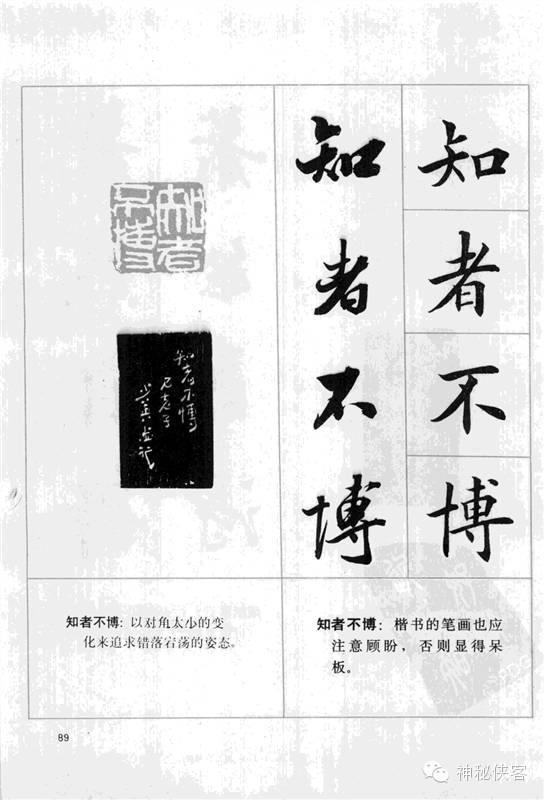 知者不博
知者不博
知者不博
知者不博
知者不博：以对角大小的变
化来追求错落宕荡的姿态。
知者不博：楷书的笔画也应
注意顾盼，否则显得呆
板。
89
神秘侠客